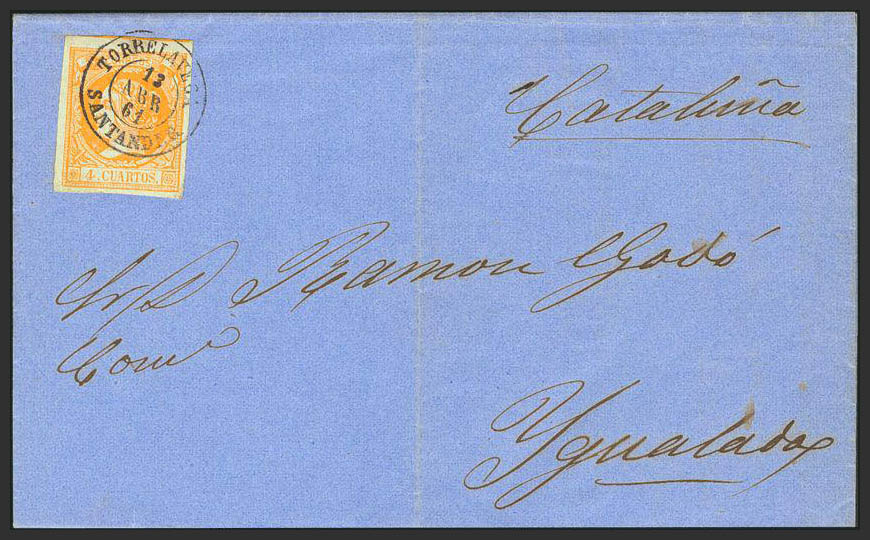 TORRELAVEGA
13
ABR
61
SANTANDER
4 CUARTOS.
Cataluña
Sr D Ramon Godó
Comº
Ygualada